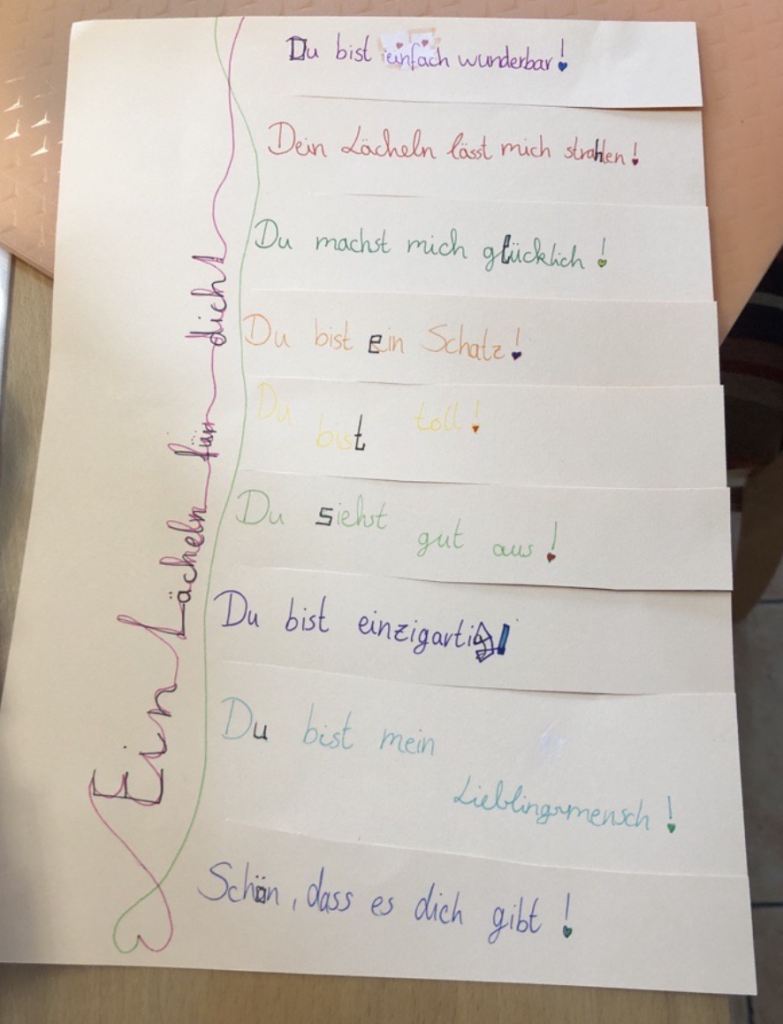 Du bist einfach wunderbar!
Dein Lächeln lässt mich strahlen!
Du machst mich glücklich!
Du bist ein Schatz!
Du bist toll!
Du siehst gut aus!
Du bist einzigartig!
Du bist mein
Lieblingsmensch!
Schön, dass es dich gibt!
Ein Lächeln für dich!